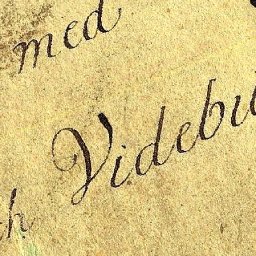 med
h Videbu